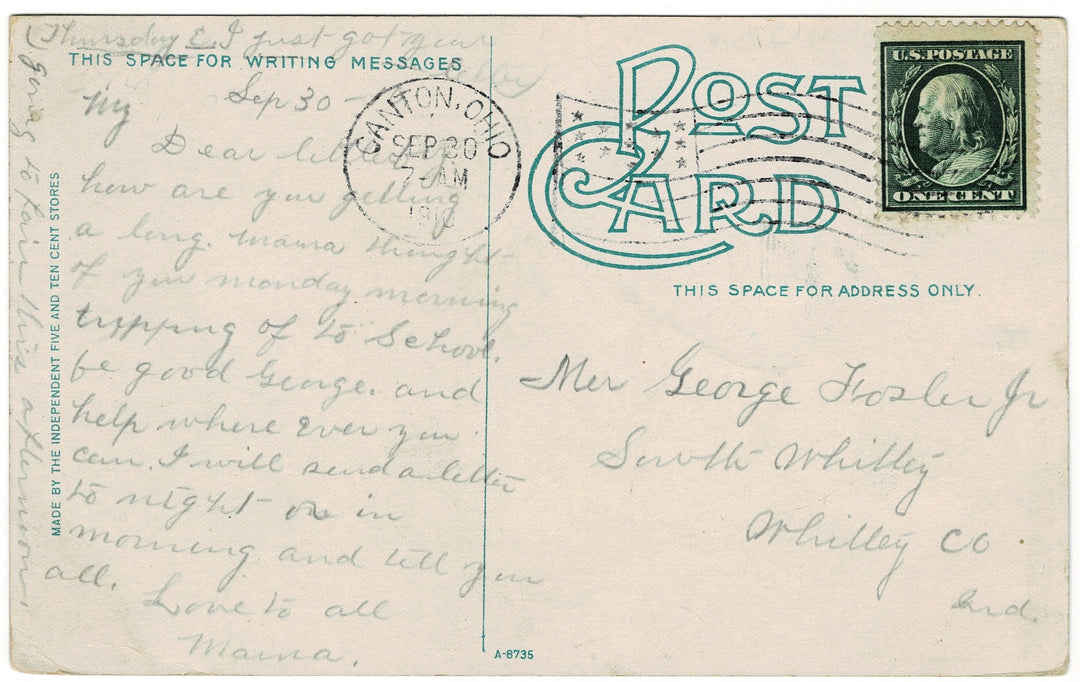 Thursday E. I just got your
letter
THIS SPACE FOR WRITING MESSAGES
Sep 30 -
My
Dear little
how are you getting
a long. mama thought
of you monday morning
tripping of to School.
be good George. and
help where Ever you
can. I will send a letter
to night or in
morning and tell you
all.
Love to all
Mama.
going to fair this afternoon.
MADE BY THE INDEPENDENT FIVE AND TEN CENT STORES
A-8735
CANTON, OHIO
SEP 30
7-AM
191
POST CARD
U.S. POSTAGE
ONE CENT
THIS SPACE FOR ADDRESS ONLY.
Mer George Fosler Jr
South Whitley
Whitley Co
Ind.